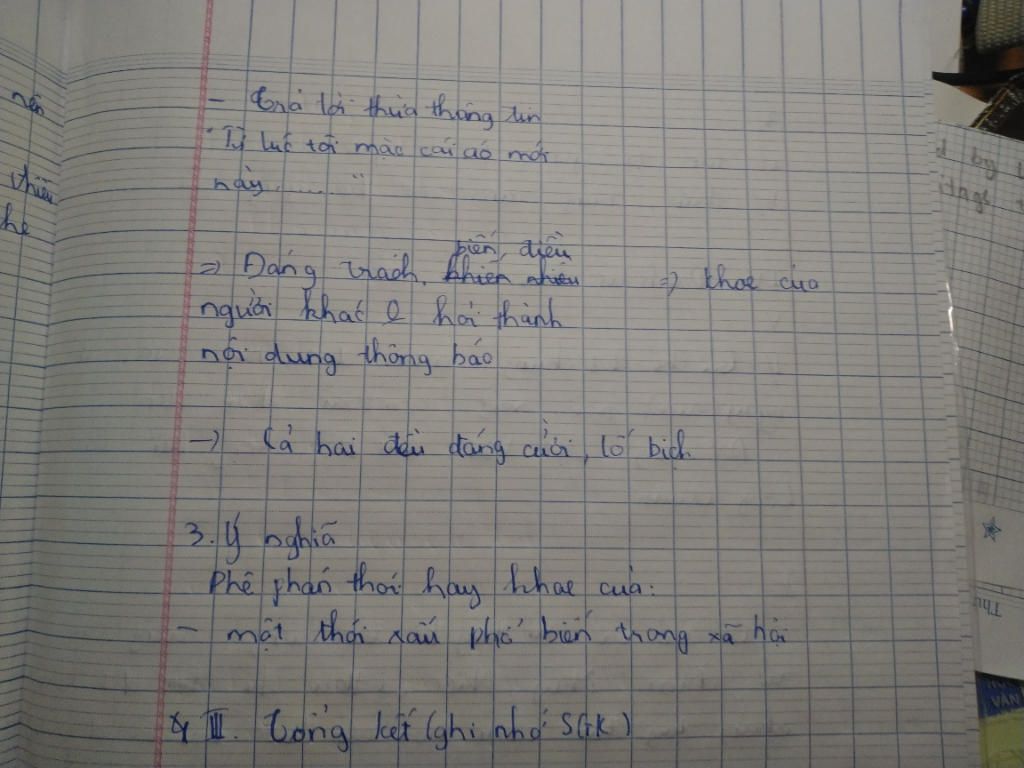 nên
- trả lời thừa thông tin
"Từ lúc tôi mặc cái áo mới
nhiều
này ........"
he
biến điều
=> Đáng trách, khiến nhiều => khoe của
người khác O hỏi thành
nội dung thông báo
-> Cả hai đều đáng cười, lố bịch
3. Ý nghĩã
phê phán thói hay khoe của:
- một thói xấu phổ biến trong xã hội
III. Tổng kết (ghi nhớ SGK)
VĂN